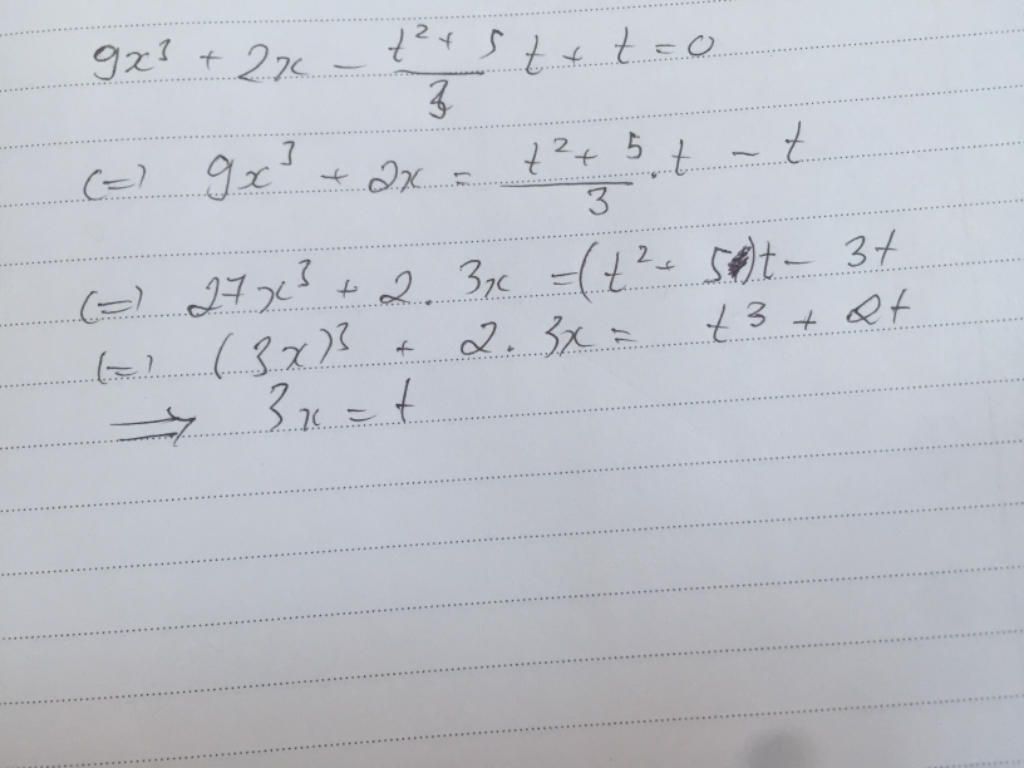 9x³ + 2x - (t² + 5)/3 t + t = 0
(=) 9x³ + 2x = (t² + 5)/3 . t - t
(=) 27x³ + 2. 3x = (t² + 5)t - 3t
(=) (3x)³ + 2. 3x = t³ + 2t
⟹ 3x = t